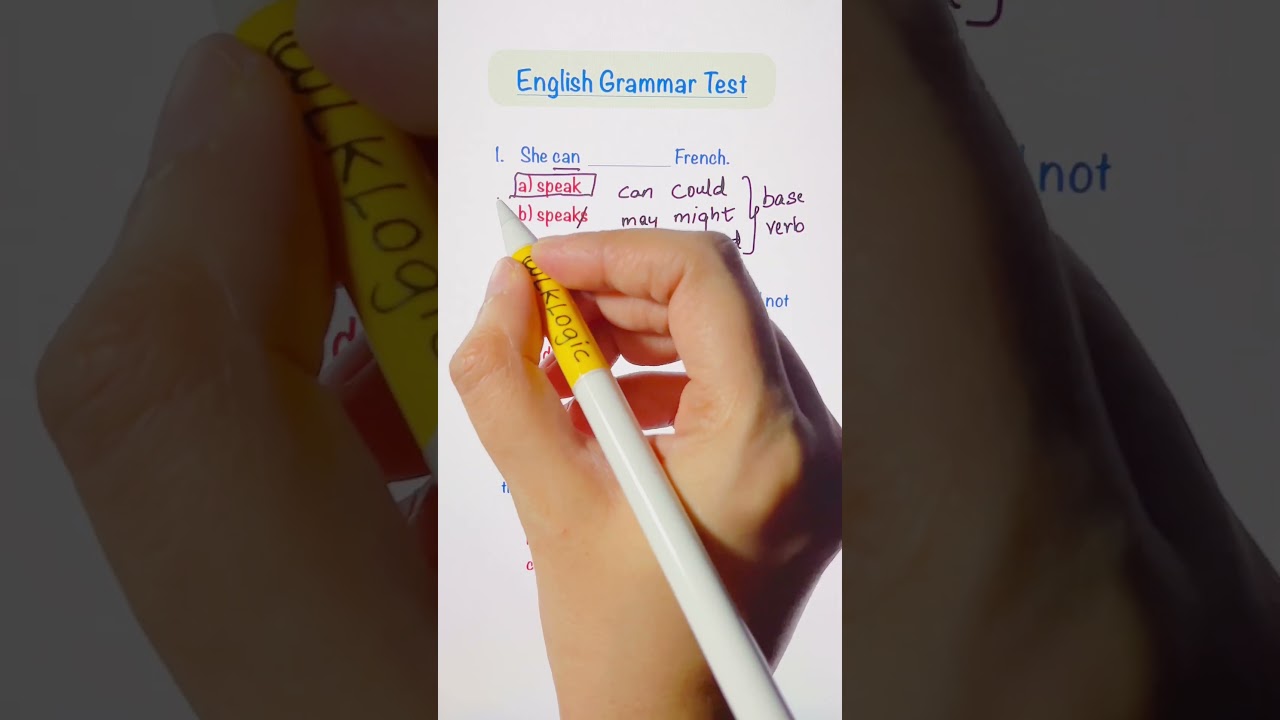 English Grammar Test
1. She can ________ French.
a) speak can could
b) speaks may might
base
verb
not
WLKLOgic